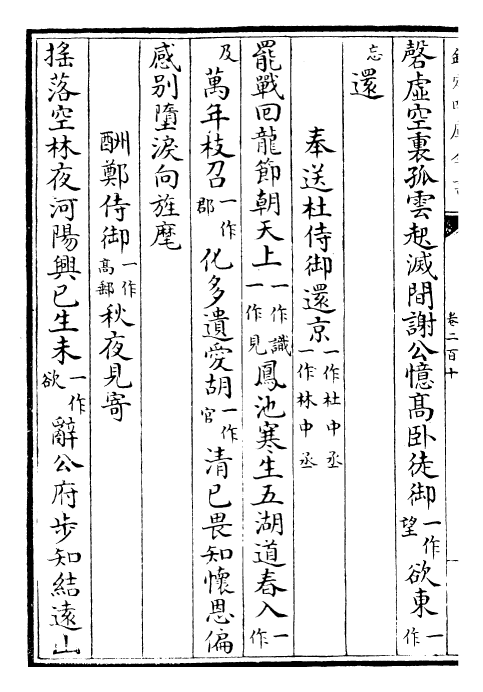 卷二百十
磬虛空裏孤雲起滅間謝公憶髙卧徒御一作望欲東一作
忘還
奉送杜侍御還京一作杜中丞一作林中丞
罷戰回龍節朝天上一作識一作見鳳池寒生五湖道春入一作
及萬年枝召一作郡化多遺愛胡一作官清已畏知懷恩偏
感别墮淚向旌麾
酬鄭侍御一作髙郵秋夜見寄
摇落空林夜河陽興已生未一作欲辭公府步知結遠山